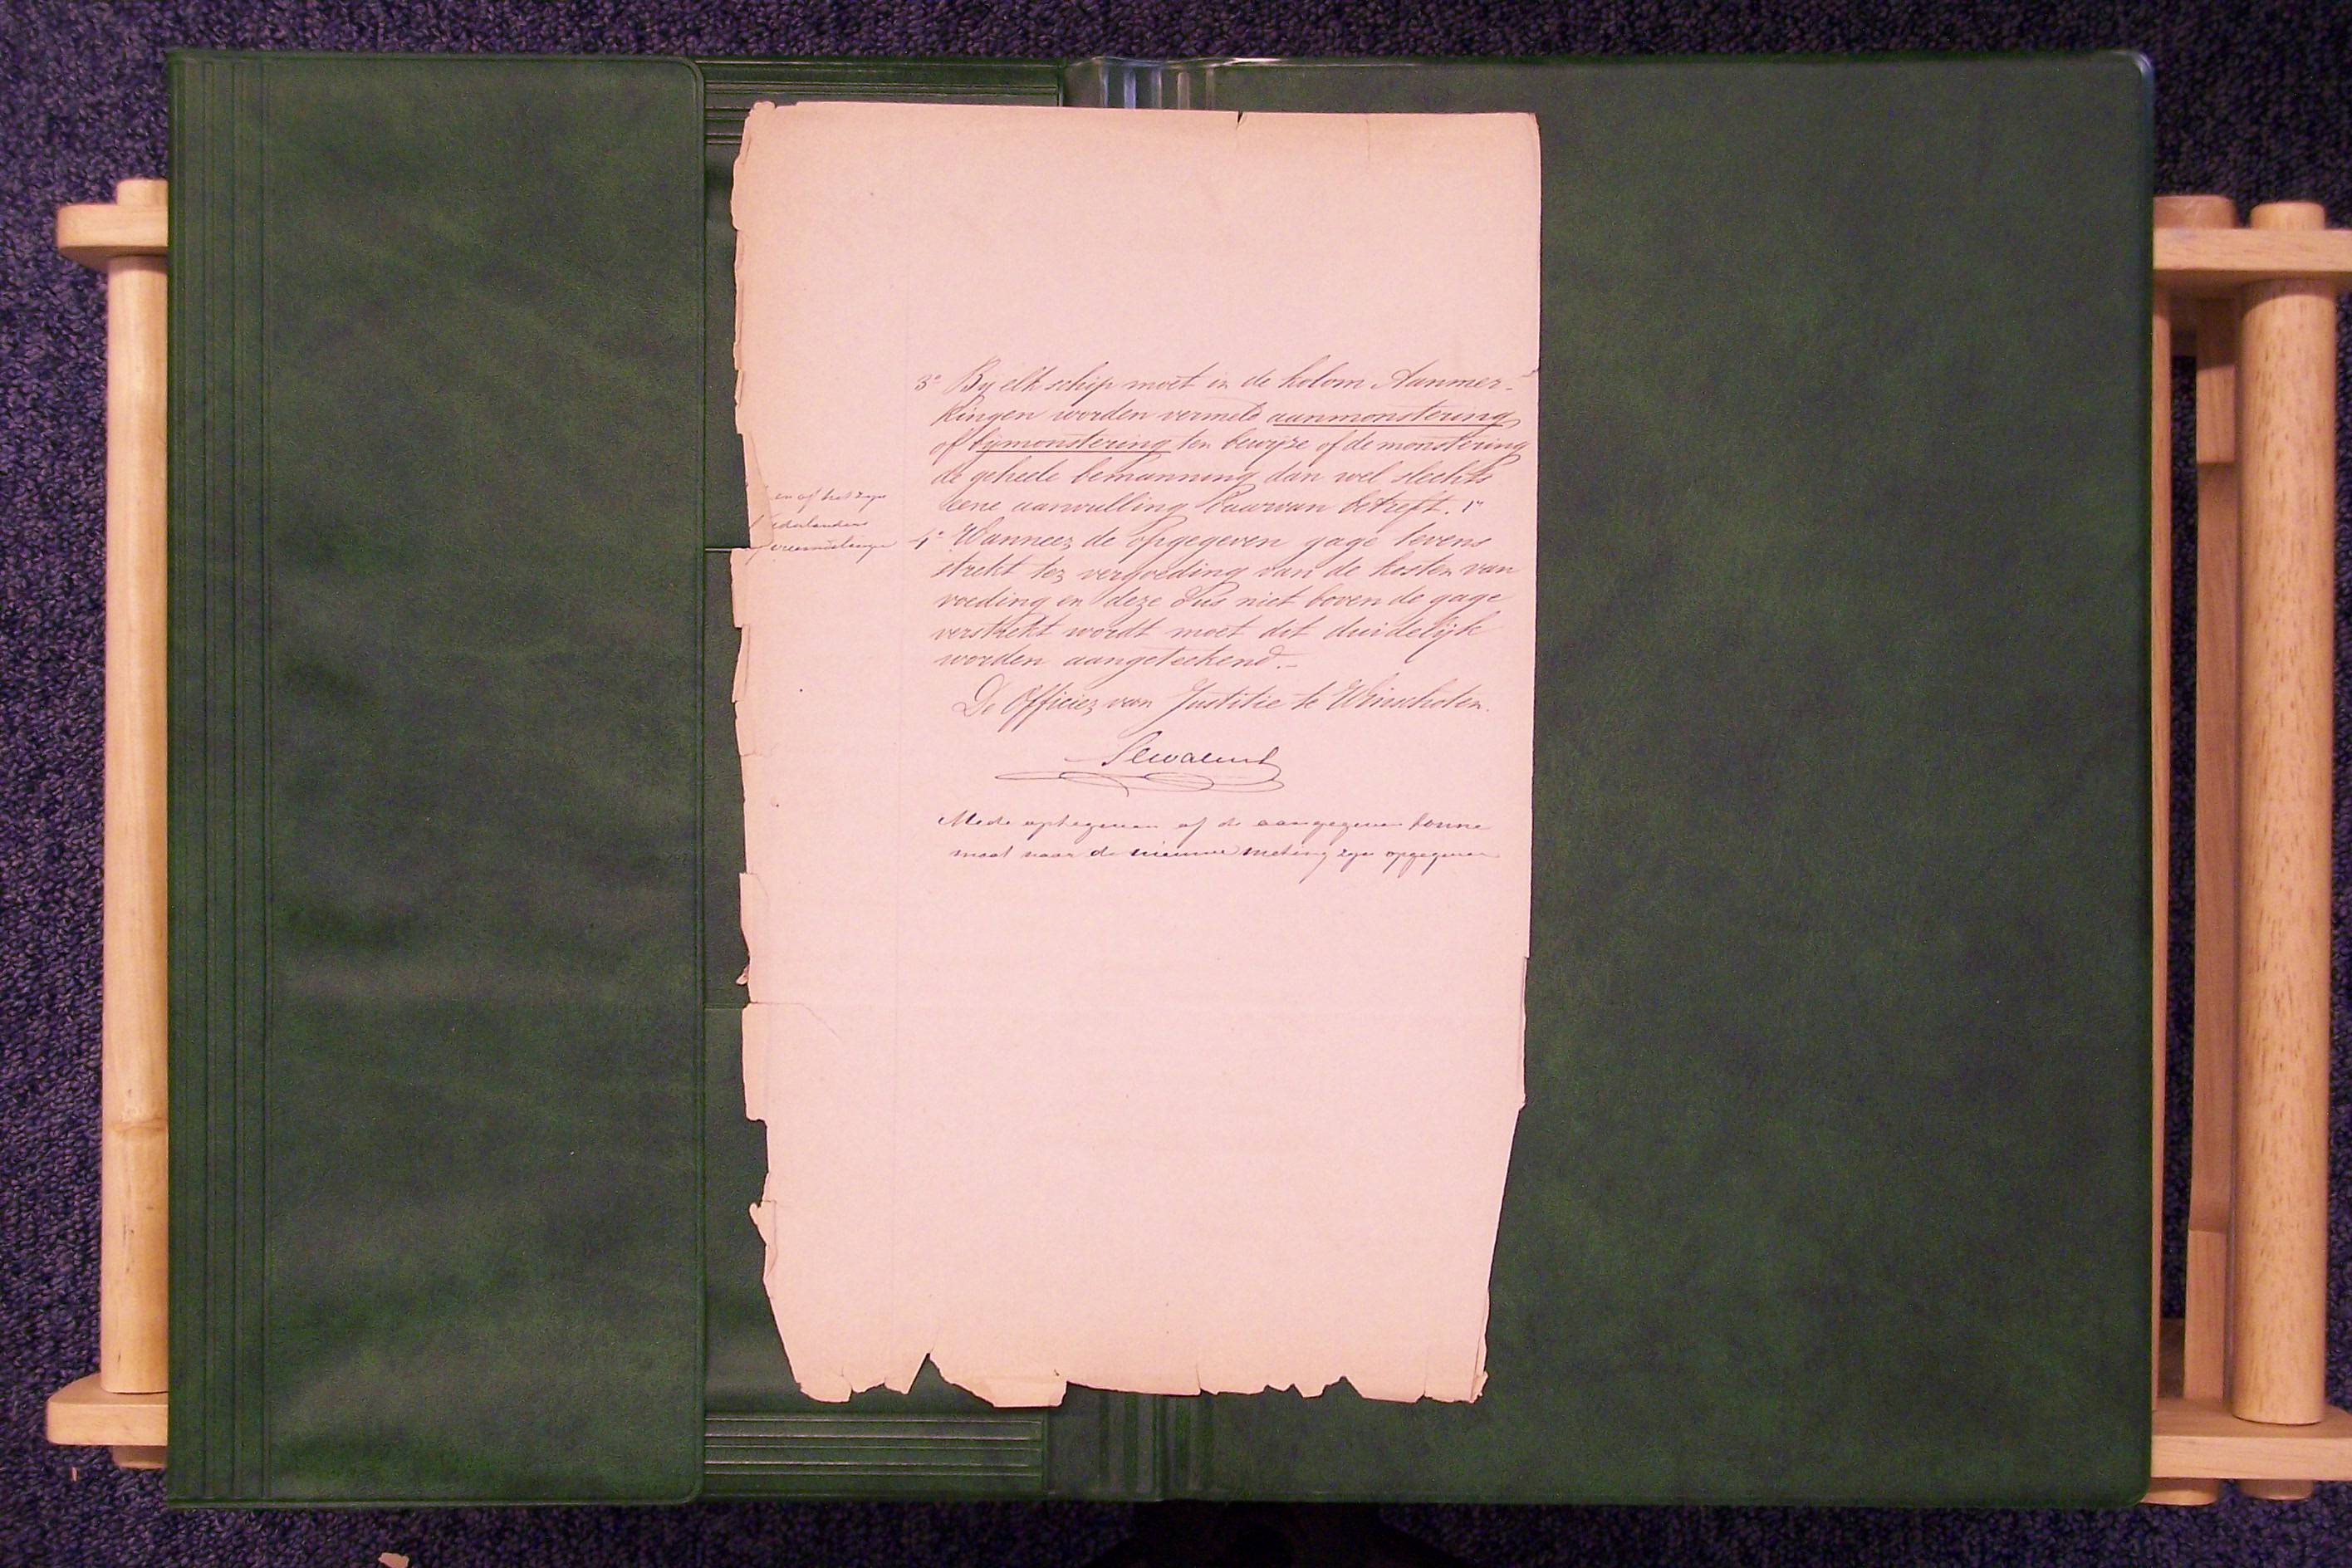 3o Bij elk schip moet in de kolom Aanmer-
kingen worden vermeld aanmonstering
of bijmonstering ten bewijze of de monstering
de geheele bemanning dan wel slechts
eene aanvulling daarvan betreft.
en of het zijn
Nederlanders
of vreemdelingen
4o Wanneer de opgegeven gage tevens
strekt ter vergoeding van de kosten van
voeding en deze dus niet boven de gage
verstrekt wordt moet dit duidelijk
worden aangeteekend.-
De Officier van Justitie te Winschoten.
Mede of de aangegeven tonne
maat naar de nieuwe meting zijn opgegeven